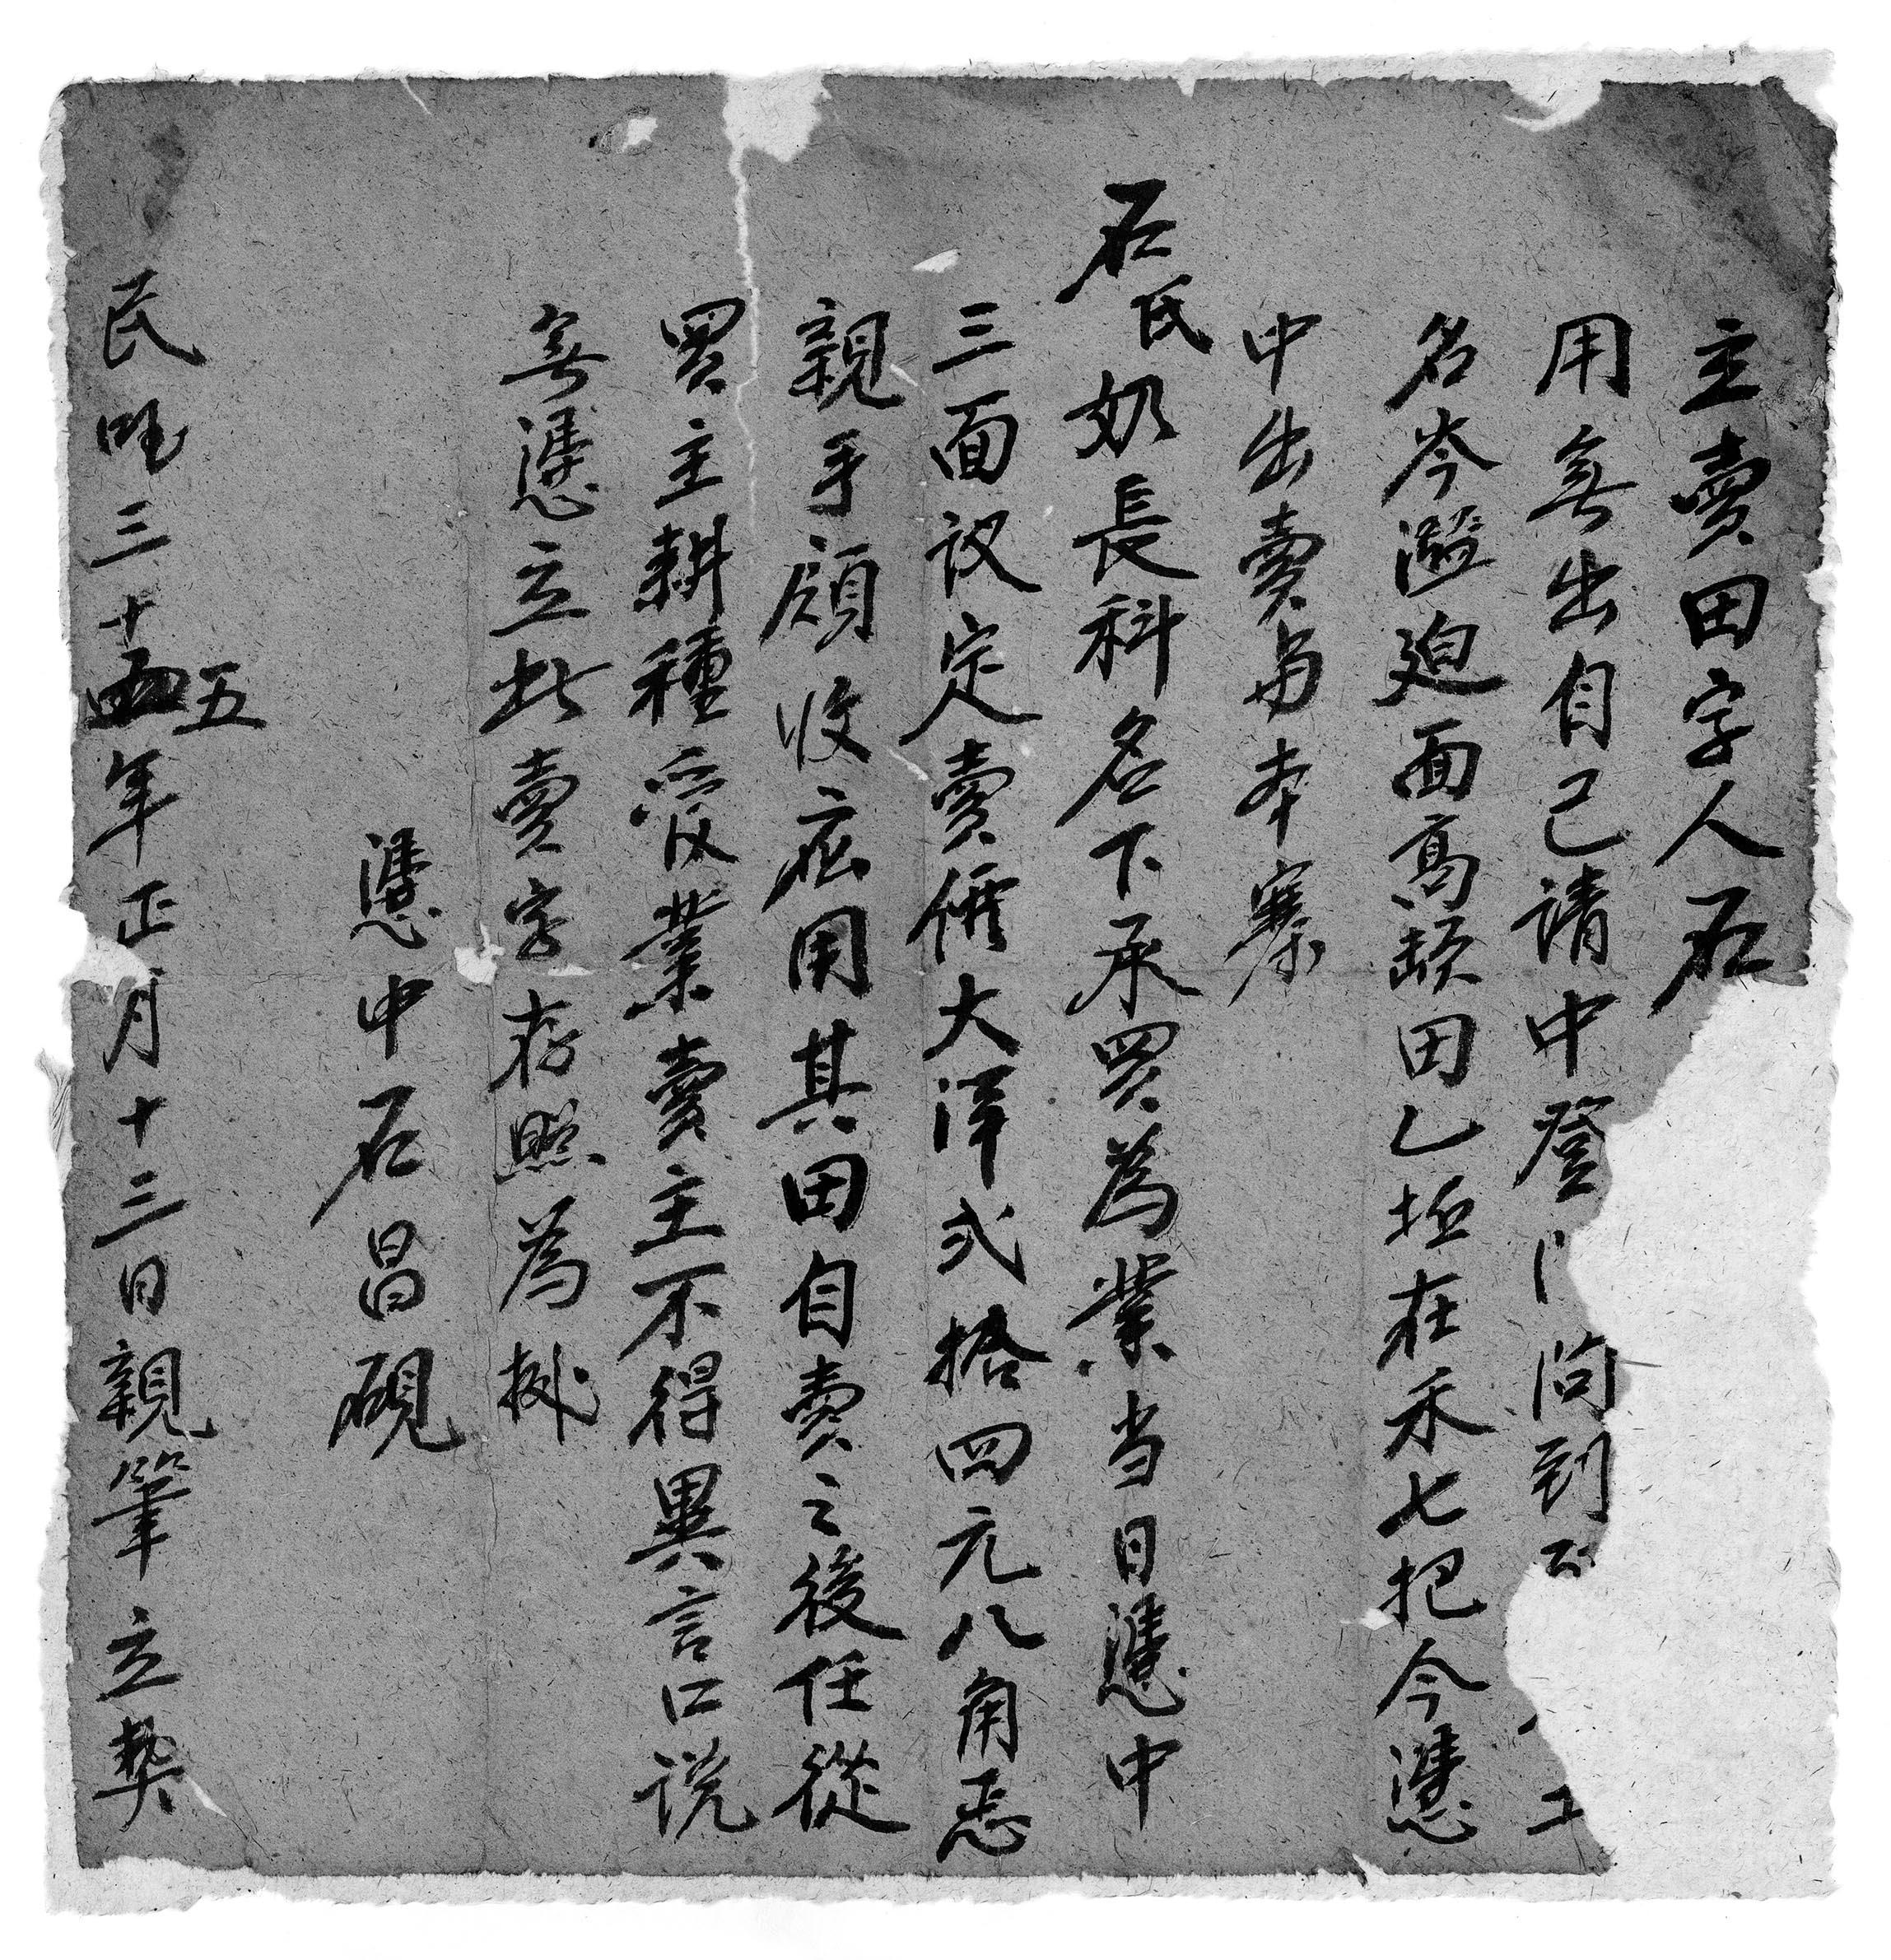 立賣田字人石
用無出自己請中登門问到
名岑灆迫面髙頭田乚坵在禾七把今憑
中出賣与本寨
石氏奶長科名下承買為業当日憑中
三面议定賣價大洋弍拾四元八角恙
親手領收应用其田自賣之後任從
買主耕種管業賣主不得異言口说
無憑立此賣字存照為據
憑中石昌硯
民国三十五年正月十三日親筆立契